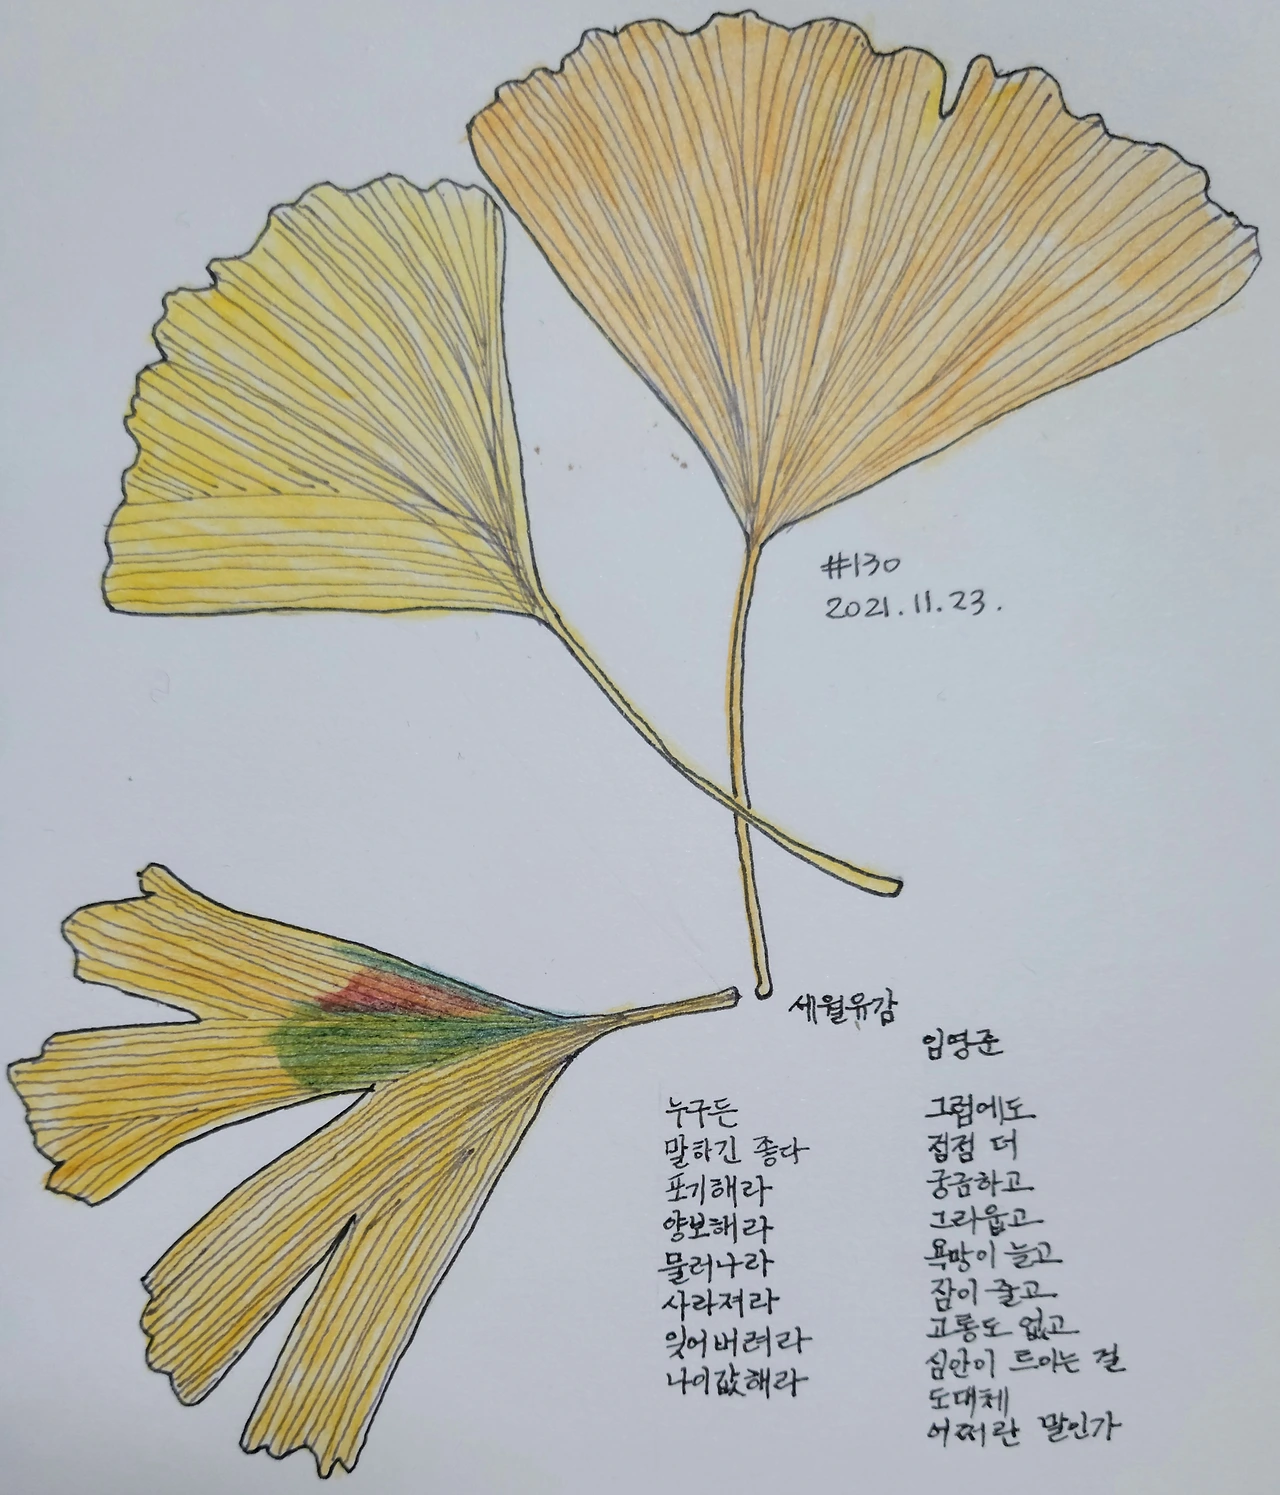 #130
2021.11.23.
세월유감
임영준
누구든
말하긴 좋다
포기해라
양보해라
물러나라
사라져라
잊어버려라
나이값해라
그럼에도
점점 더
궁금하고
그리웁고
욕망이 늘고
잠이 줄고
고통도 없고
심안이 트이는 걸
도대체
어쩌란 말인가